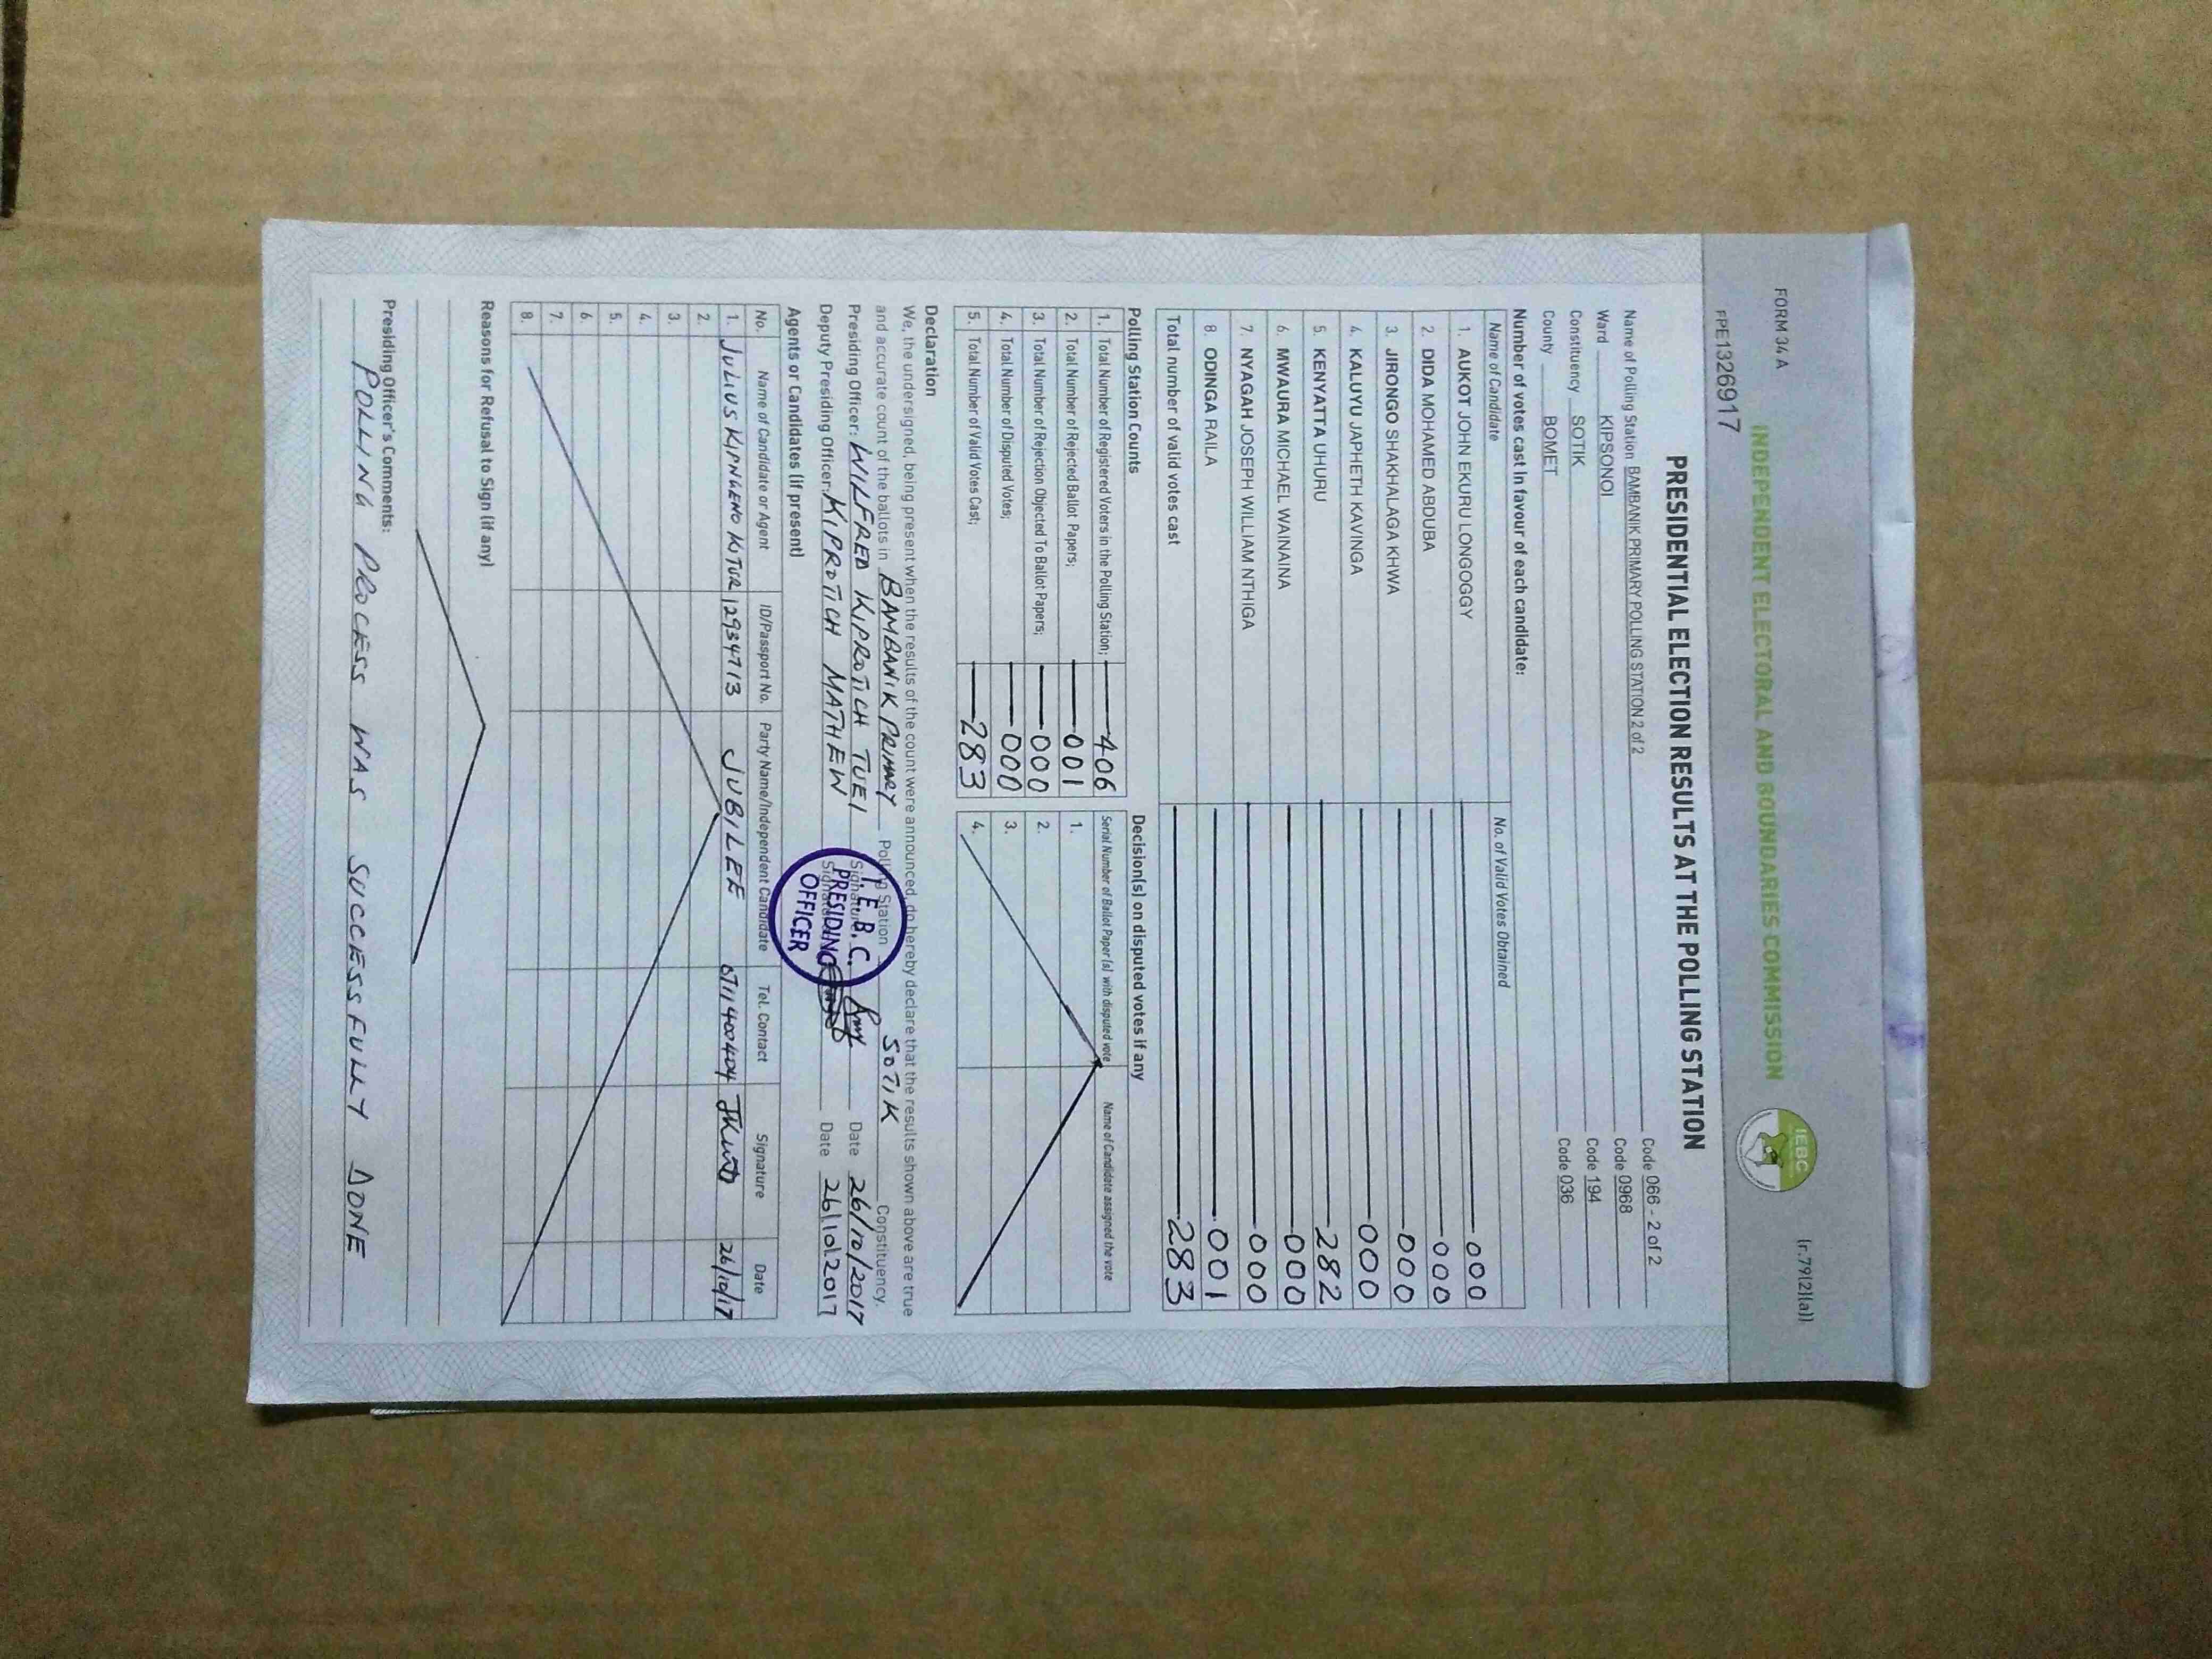 FORM 34 A
(r.79(2)(a))
INDEPENDENT ELECTORAL AND BOUNDARIES COMMISSION
IEBC
FPE1326917
PRESIDENTIAL ELECTION RESULTS AT THE POLLING STATION
Name of Polling Station BAMBANIK PRIMARY POLLING STATION 2 of 2 Code 066 - 2 of 2
Ward KIPSONOI Code 0968
Constituency SOTIK Code 194
County BOMET Code 036
Number of votes cast in favour of each candidate:
Name of Candidate No. of Valid Votes Obtained
1. AUKOT JOHN EKURU LONGOGGY 000
2. DIDA MOHAMED ABDUBA 000
3. JIRONGO SHAKHALAGA KHWA 000
4. KALUYU JAPHETH KAVINGA 000
5. KENYATTA UHURU 282
6. MWAURA MICHAEL WAINAINA 000
7. NYAGAH JOSEPH WILLIAM NTHIGA 000
8. ODINGA RAILA 001
Total number of valid votes cast 283
Polling Station Counts
1. Total Number of Registered Voters in the Polling Station; 406
2. Total Number of Rejected Ballot Papers; 001
3. Total Number of Rejection Objected To Ballot Papers; 000
4. Total Number of Disputed Votes; 000
5. Total Number of Valid Votes Cast; 283
Decision(s) on disputed votes if any
Serial Number of Ballot Paper(s) with disputed vote Name of Candidate assigned the vote
1.
2.
3.
4.
Declaration
We, the undersigned, being present when the results of the count were announced, do hereby declare that the results shown above are true
and accurate count of the ballots in BAMBANIK PRIMARY Polling Station SOTIK Constituency.
Presiding Officer: WILFRED KIPROTICH TUEI Signature Date 26/10/2017
Deputy Presiding Officer: KIPROTICH MATHEW Signature Date 26/10/2017
I.E.B.C.
PRESIDING
OFFICER
Agents or Candidates (if present)
No. Name of Candidate or Agent ID/Passport No. Party Name/Independent Candidate Tel. Contact Signature Date
1. JULIUS KIPNGENO KITUR 12934713 JUBILEE 0711400404 26/10/17
2.
3.
4.
5.
6.
7.
8.
Reasons for Refusal to Sign (if any)
Presiding Officer's Comments:
POLLING PROCESS WAS SUCCESSFULLY DONE